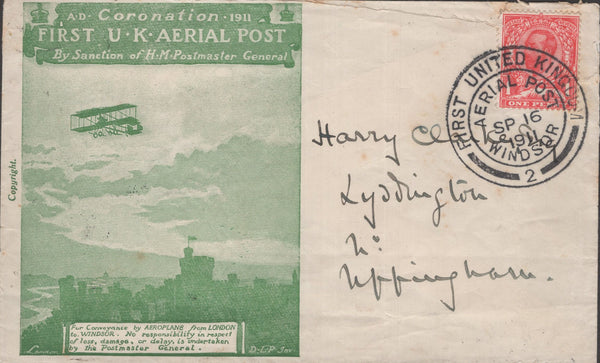 A·D· Coronation · 1911
FIRST U·K·AERIAL POST
By Sanction of H·M·Postmaster General
Copyright.
For Conveyance by AEROPLANE from LONDON
to WINDSOR. No responsibility in respect
of loss, damage, or delay, is undertaken
by the Postmaster General.
London
FIRST UNITED KINGDOM
AERIAL POST
SP 16
1911
WINDSOR
2
ONE PENNY
Harry
Lyddington
Nr
Uppingham.